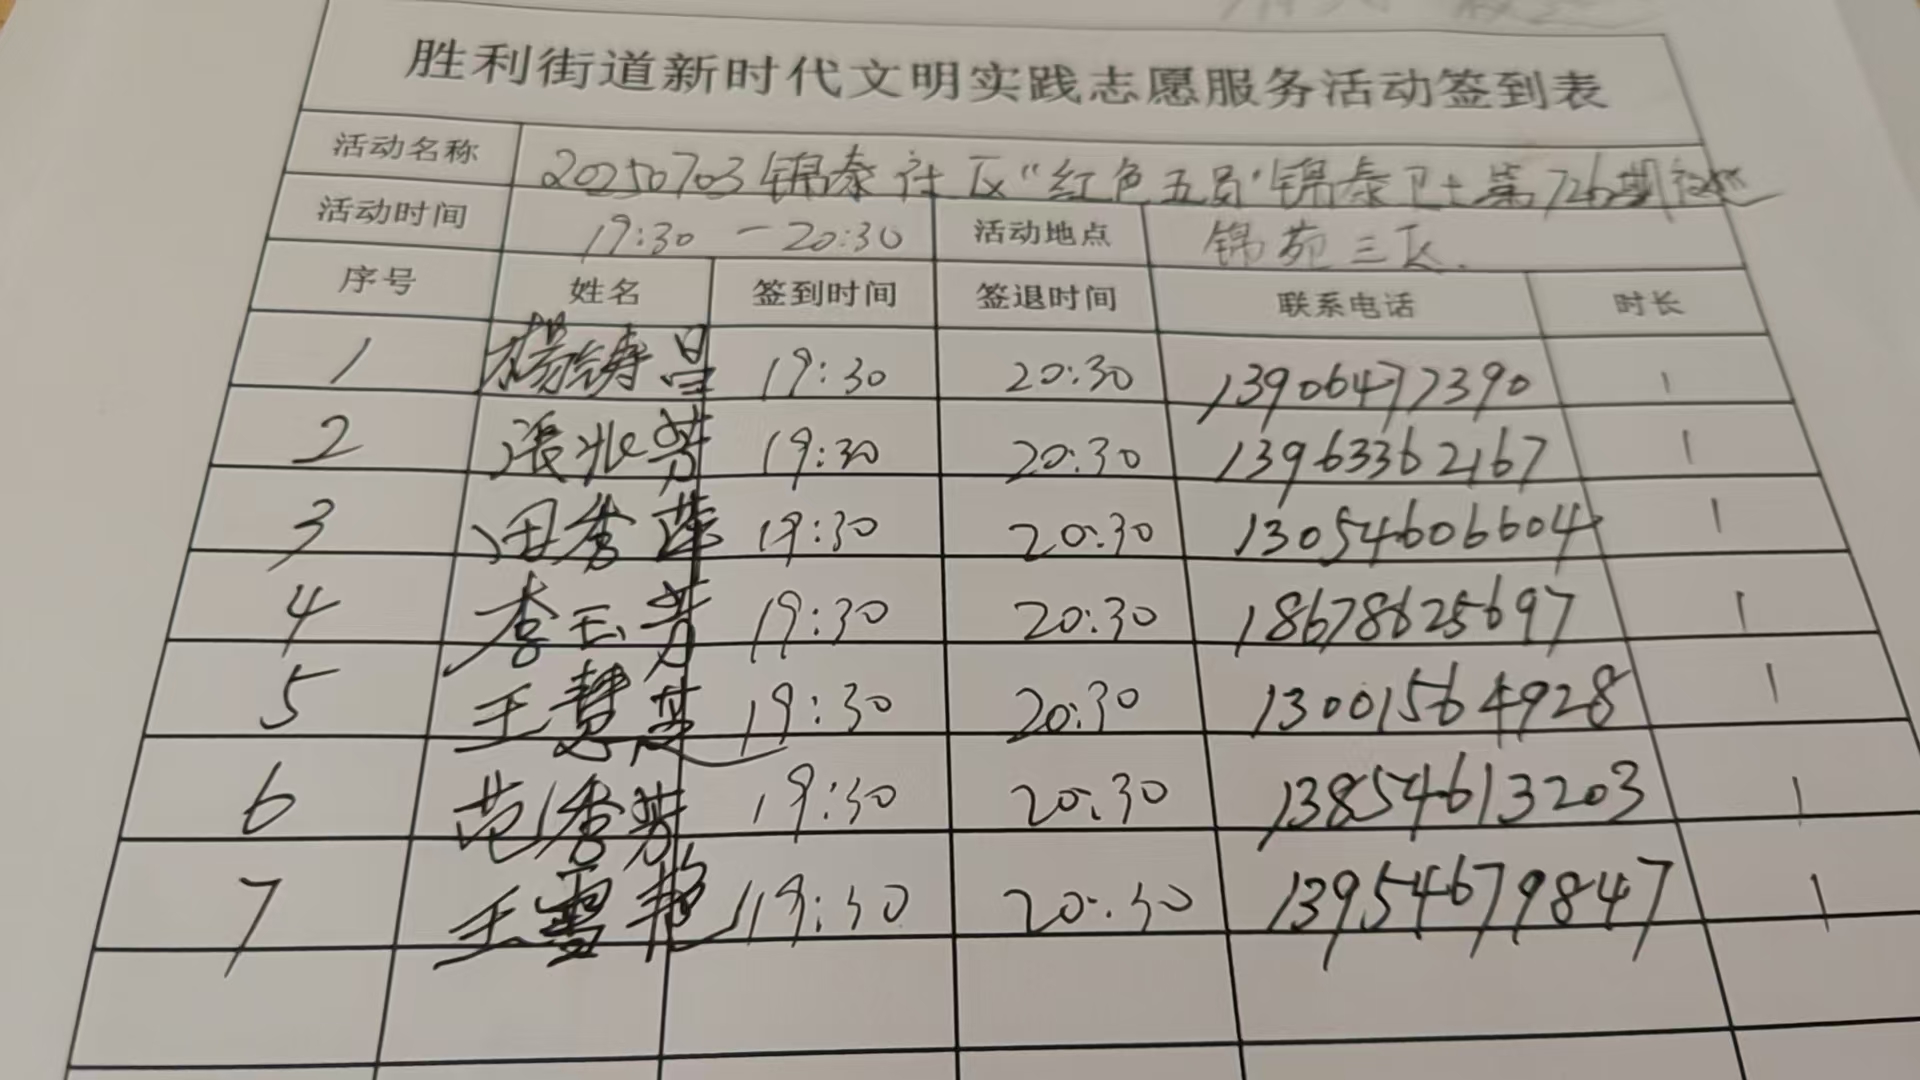 胜利街道新时代文明实践志愿服务活动签到表
活动名称 20250703锦泰社区“红色五员”锦泰卫士第726期
活动时间 19:30 — 20:30 活动地点 锦苑三区.
序号 姓名 签到时间 签退时间 联系电话 时长
1 杨铸昌 19:30 20:30 13906477390 1
2 张兆芳 19:30 20:30 13963362167 1
3 田秀莲 19:30 20:30 13054606604 1
4 李玉芳 19:30 20:30 18678625697 1
5 王慧英 19:30 20:30 13001564928 1
6 范秀芳 19:30 20:30 13854613203 1
7 王雪艳 19:30 20:30 13954679847 1